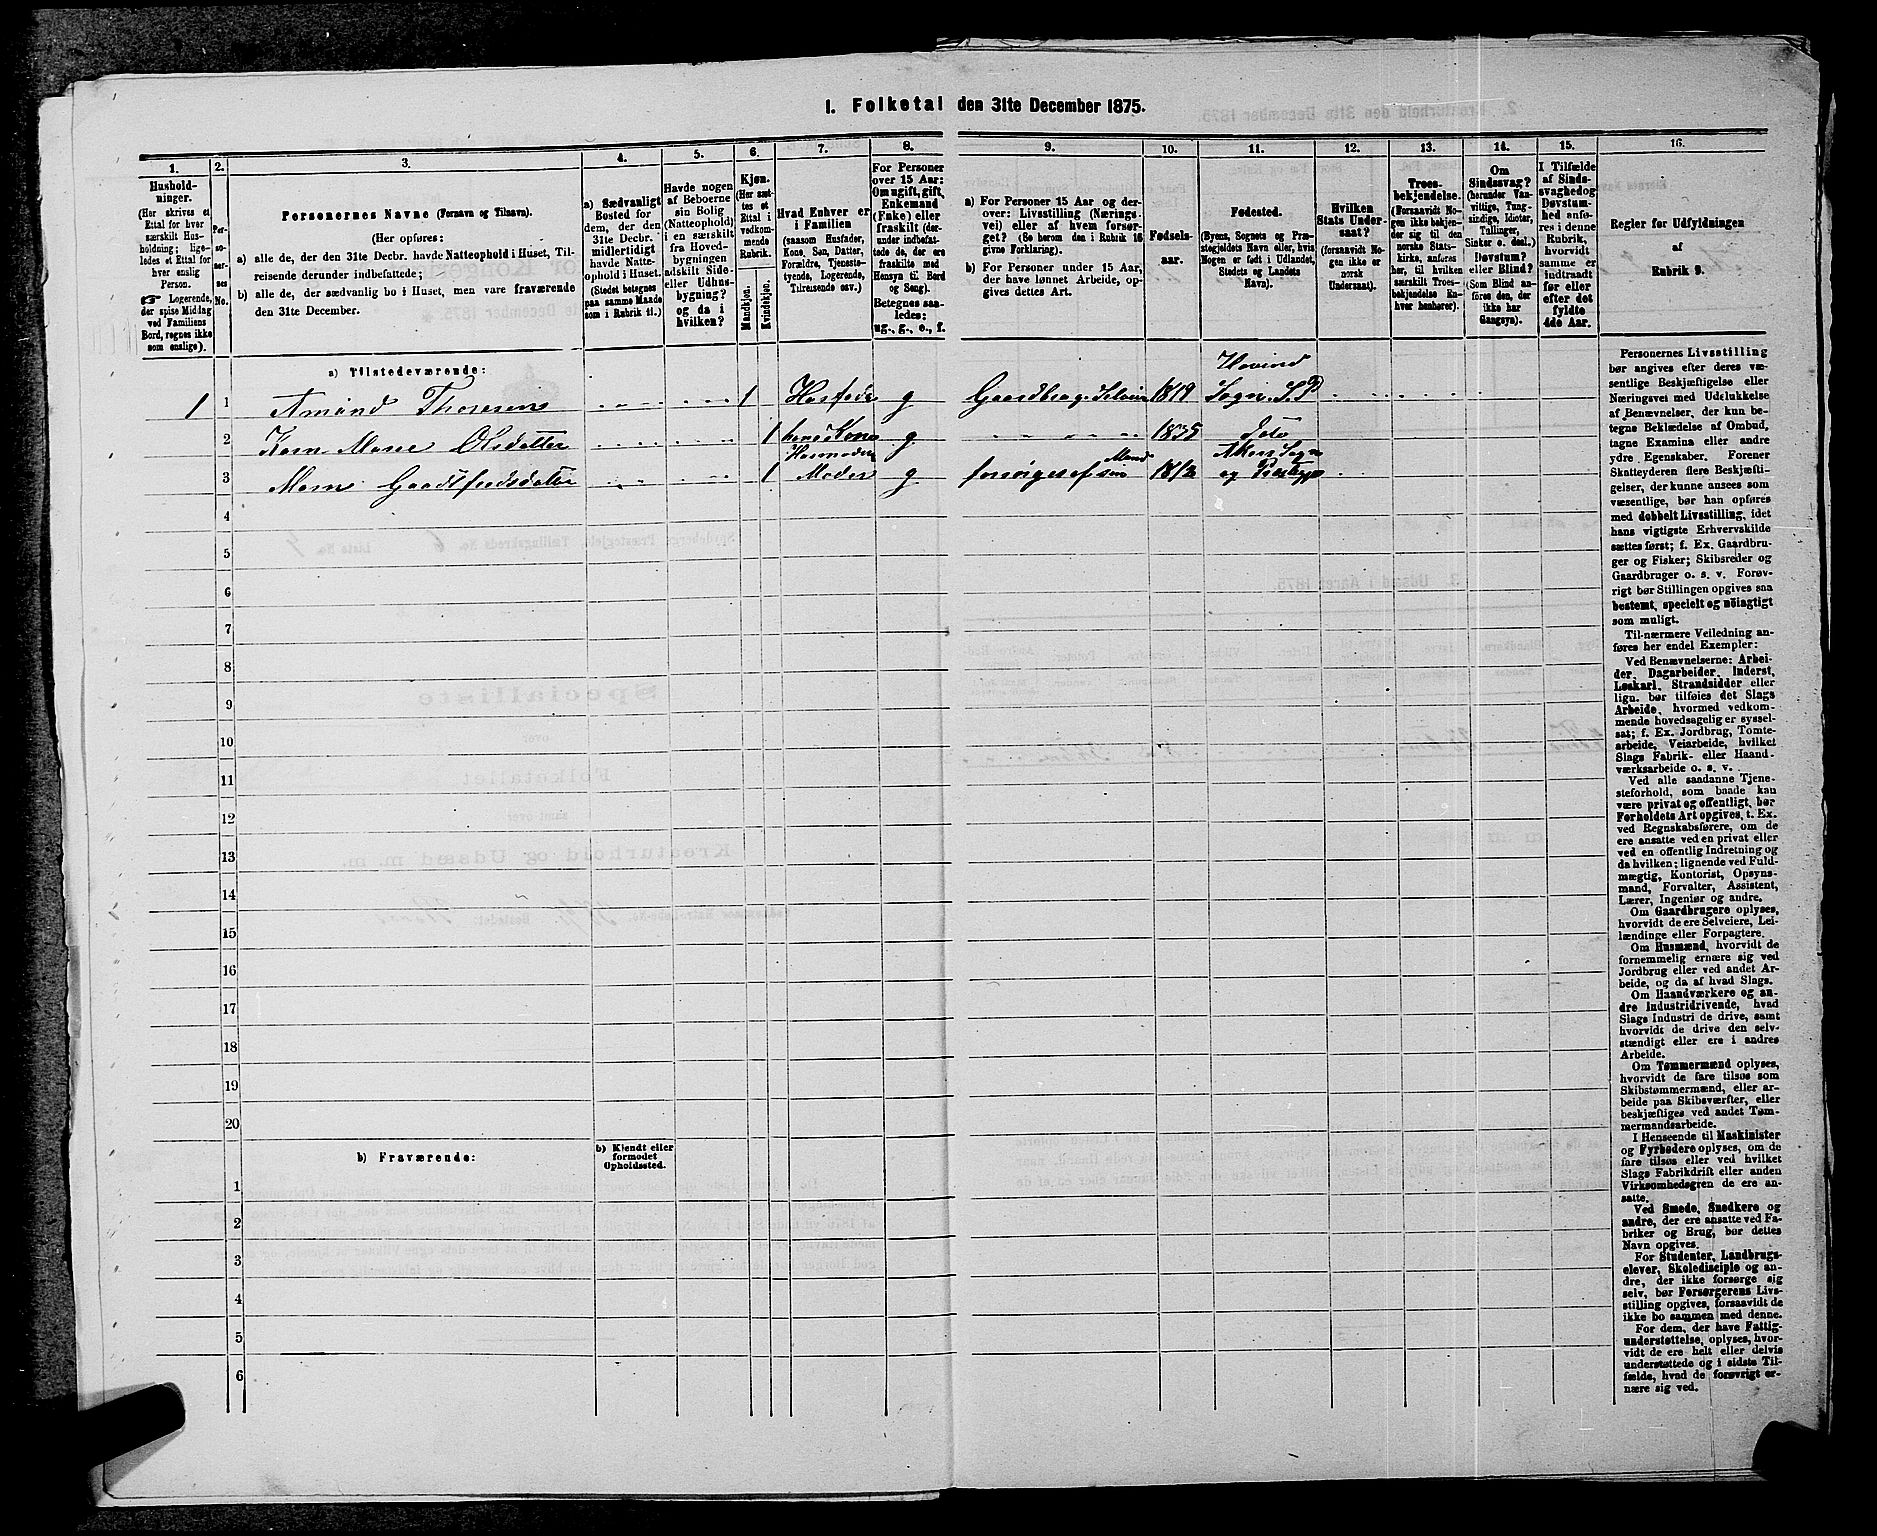 1. Folketal den 31te December 1875.
1.
Hushold-
ninger.
(Her skrives et
Ettal for hver
særskilt Hus-
holdning; lige-
ledes et Ettal for
hver enslig
Person.
☞ Logerende,
der spise Middag
ved Familiens
Bord, regnes ikke
som enslige).
2.
Per-
so-
ner-
nes
No.
3.
Personernes Navne (Fornavn og Tilnavn).
(Her opføres:
a) alle de, der den 31te Decbr. havde Natteophold i Huset, Til-
reisende derunder indbefattede;
b) alle de, der sædvanlig bo i Huset, men vare fraværende
den 31te December.
4.
a) Sædvanligt
Bosted for
dem, der den
31te Decbr.
midlertidigt
havde Natte-
ophold i Huset.
(Stedet betegnes
paa samme Maade
som i Rubrik 11.)
5.
Havde nogen
af Beboerne
sin Bolig
(Natteophold)
i en særskilt
fra Hoved-
bygningen
adskilt Side-
eller Udhus-
bygning?
og da i
hvilken?
6.
Kjøn.
(Her sæt-
tes et
Ettal i
vedkom-
mende
Rubrik.
Mandkjøn.
Kvindekjøn.
7.
Hvad Enhver er
i Familien
(saasom Husfader,
Kone, Søn, Datter,
Forældre, Tjeneste-
tyende, Logerende,
Tilreisende osv.)
8.
For Personer
over 15 Aar:
Om ugift, gift,
Enkemand
(Enke) eller
fraskilt (der-
under indbefat-
tede de, der ere
fraskilte med
Hensyn til Bord
og Seng).
Betegnes saa-
ledes:
ug., g., e., f.
9.
a) For Personer 15 Aar og der-
over: Livsstilling (Nærings-
vei) eller af hvem forsør-
get? (Se herom den i Rubrik 16
givne Forklaring).
b) For Personer under 15 Aar,
der have lønnet Arbeide, op-
gives dettes Art.
10.
Fødsels-
aar.
11.
Fødested.
(Byens, Sognets og Præ-
stegjeldets Navn eller, hvis
Nogen er født i Udlandet,
Stedets og Landets
Navn).
12.
Hvilken
Stats Under-
saat?
(forsaavidt No-
gen ikke er
norsk
Undersaat).
13.
Troes-
bekjendelse.
(Forsaavidt No-
gen ikke bekjen-
der sig til den
norske Stats-
kirke, anføres
her, til hvilken
særskilt Troes-
bekjendelse En-
hver henhører).
14.
Om
Sindssvag?
(herunder Van-
vittige, Tung-
sindige, Idioter,
Tullinger,
Sinker o. desl.)
Døvstum?
eller Blind?
(Som Blind an-
føres den, der
ikke har
Gangsyn).
15.
I Tilfælde
af Sinds-
svaghed og
Døvstum-
hed anfø-
res i denne
Rubrik,
hvorvidt
samme er
indtraadt
før eller
efter det
fyldte
4de Aar.
16.
Regler før Udfyldningen
af
Rubrik 9.
a) Tilstedeværende:
1 1 Amund Thoresen 1 Husfader g Gaardbrug. Selveier 1819 Hovind
Sogn. S. P.
2 Karn Marie Olsdatter 1 hans Kone g 1835 Dito
3 Maren Gaadtfredsdatter 1 Husmoderens
Moder g forsørges af sin Mand 1812 Aker Sogn
og Præstegj
4
5
6
7
8
9
10
11
12
13
14
15
16
17
18
19
20
b) Fraværende:
b) Kjendt eller
formodet
Opholdssted.
1
2
3
4
5
6
Personernes Livsstilling
bør angives efter deres væ-
sentlige Beskjæftigelse eller
Næringsvei med Udelukkelse
af Benævnelser, der kun be-
tegne Beklædelse af Ombud,
tagne Examina eller andre
ydre Egenskaber. Forener
Skatteyderen flere Beskjæfti-
gelser, der kunne ansees som
væsentlige, bør han opføres
med dobbelt Livsstilling, idet
hans vigtigste Erhvervskilde
sættes først; f. Ex. Gaardbru-
ger og Fisker; Skibsreder og
Gaardbruger o. s. v. Forøv-
rigt bør Stillingen opgives saa
bestemt, specielt og nöiagtigt
som muligt.
Til nærmere Veiledning an-
føres her endel Exempler:
Ved Benævnelserne: Arbei-
der, Dagarbeider, Inderst,
Løskarl, Strandsidder eller
lign. bør tilføies det Slags
Arbeide, hvormed vedkom-
mende hovedsagelig er syssel-
sat; f. Ex. Jordbrug, Tomte-
arbeide, Veiarbeide, hvilket
Slags Fabrik- eller Haand-
værksarbeide o. s. v.
Ved alle saadanne Tjene-
steforhold, som baade kan
være privat og offentligt, bør
Forholdets Art opgives, t. Ex.
ved Regnskabsførere, om de
ere ansatte ved en privat eller
ved en offentlig Indretning og
da hvilken; lignende ved Fuld-
mægtig, Kontorist, Opsyns-
mand, Forvalter, Assistent,
Lærer, Ingeniør og andre.
Om Gaardbrugere oplyses,
hvorvidt de ere Selveiere, Lei-
lændinge eller Forpagtere.
Om Husmænd, hvorvidt de
fornemmelig ernære sig ved
Jordbrug eller ved andet Ar-
beide, og da af hvad Slags.
Om Haandværkere og an-
dre Industridrivende, hvad
Slags Industri de drive, samt
hvorvidt de drive den selv-
stændigt eller ere i andres
Arbeide.
Om Tømmermænd oplyses,
hvorvidt de fare tilsøs som
Skibstømmermænd, eller ar-
beide paa Skibsværfter, eller
beskjæftiges ved andet Tøm-
mermandsarbeide.
I Henseende til Maskinister
og Fyrbødere oplyses, om de
fare tilsøs eller ved hvilket
Slags Fabrikdrift eller anden
Virksomhedsgren de ere an-
satte.
Ved Smede, Snedkere og
andre, der ere ansatte ved Fa-
briker og Brug, bør dettes
Navn opgives.
For Studenter, Landbrugs-
elever, Skoledisciple og an-
dre, der ikke forsørge sig
selv, bør Forsørgerens Livs-
stilling opgives, forsaavidt de
ikke bo sammen med denne.
For dem, der have Fattig-
understøttelse, oplyses, hvor-
vidt de ere helt eller delvis
understøttede og i sidste Til-
fælde, hvad de forøvrigt er-
nære sig ved.